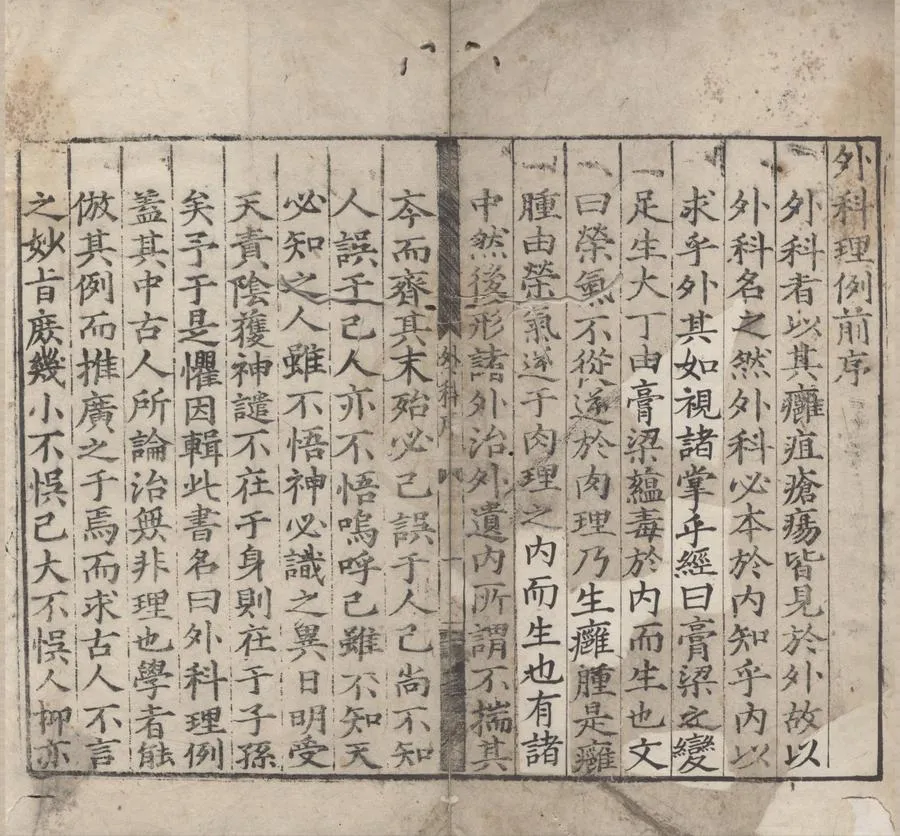 外科理例前序
外科者以其癰疽瘡瘍皆見於外故以
外科名之然外科必本於內知乎內以
求乎外其如視諸掌乎經曰膏梁之變
足生大丁由膏梁蘊毒於內而生也文
曰榮氣不從逆於肉理乃生癰腫是癰
腫由榮氣逆于肉理之內而生也有諸
中然後形諸外治外遺內所謂不揣其
外科序
一
夲而齊其末殆必己誤于人己尚不知
人誤于己人亦不悟嗚呼己雖不知天
必知之人雖不悟神必識之異日明受
天責陰獲神譴不在于身則在于子孫
矣予于是懼因輯此書名曰外科理例
盖其中古人所論治無非理也學者能
倣其例而推廣之于焉而求古人不言
之妙旨庶幾小不悞己大不悞人抑亦